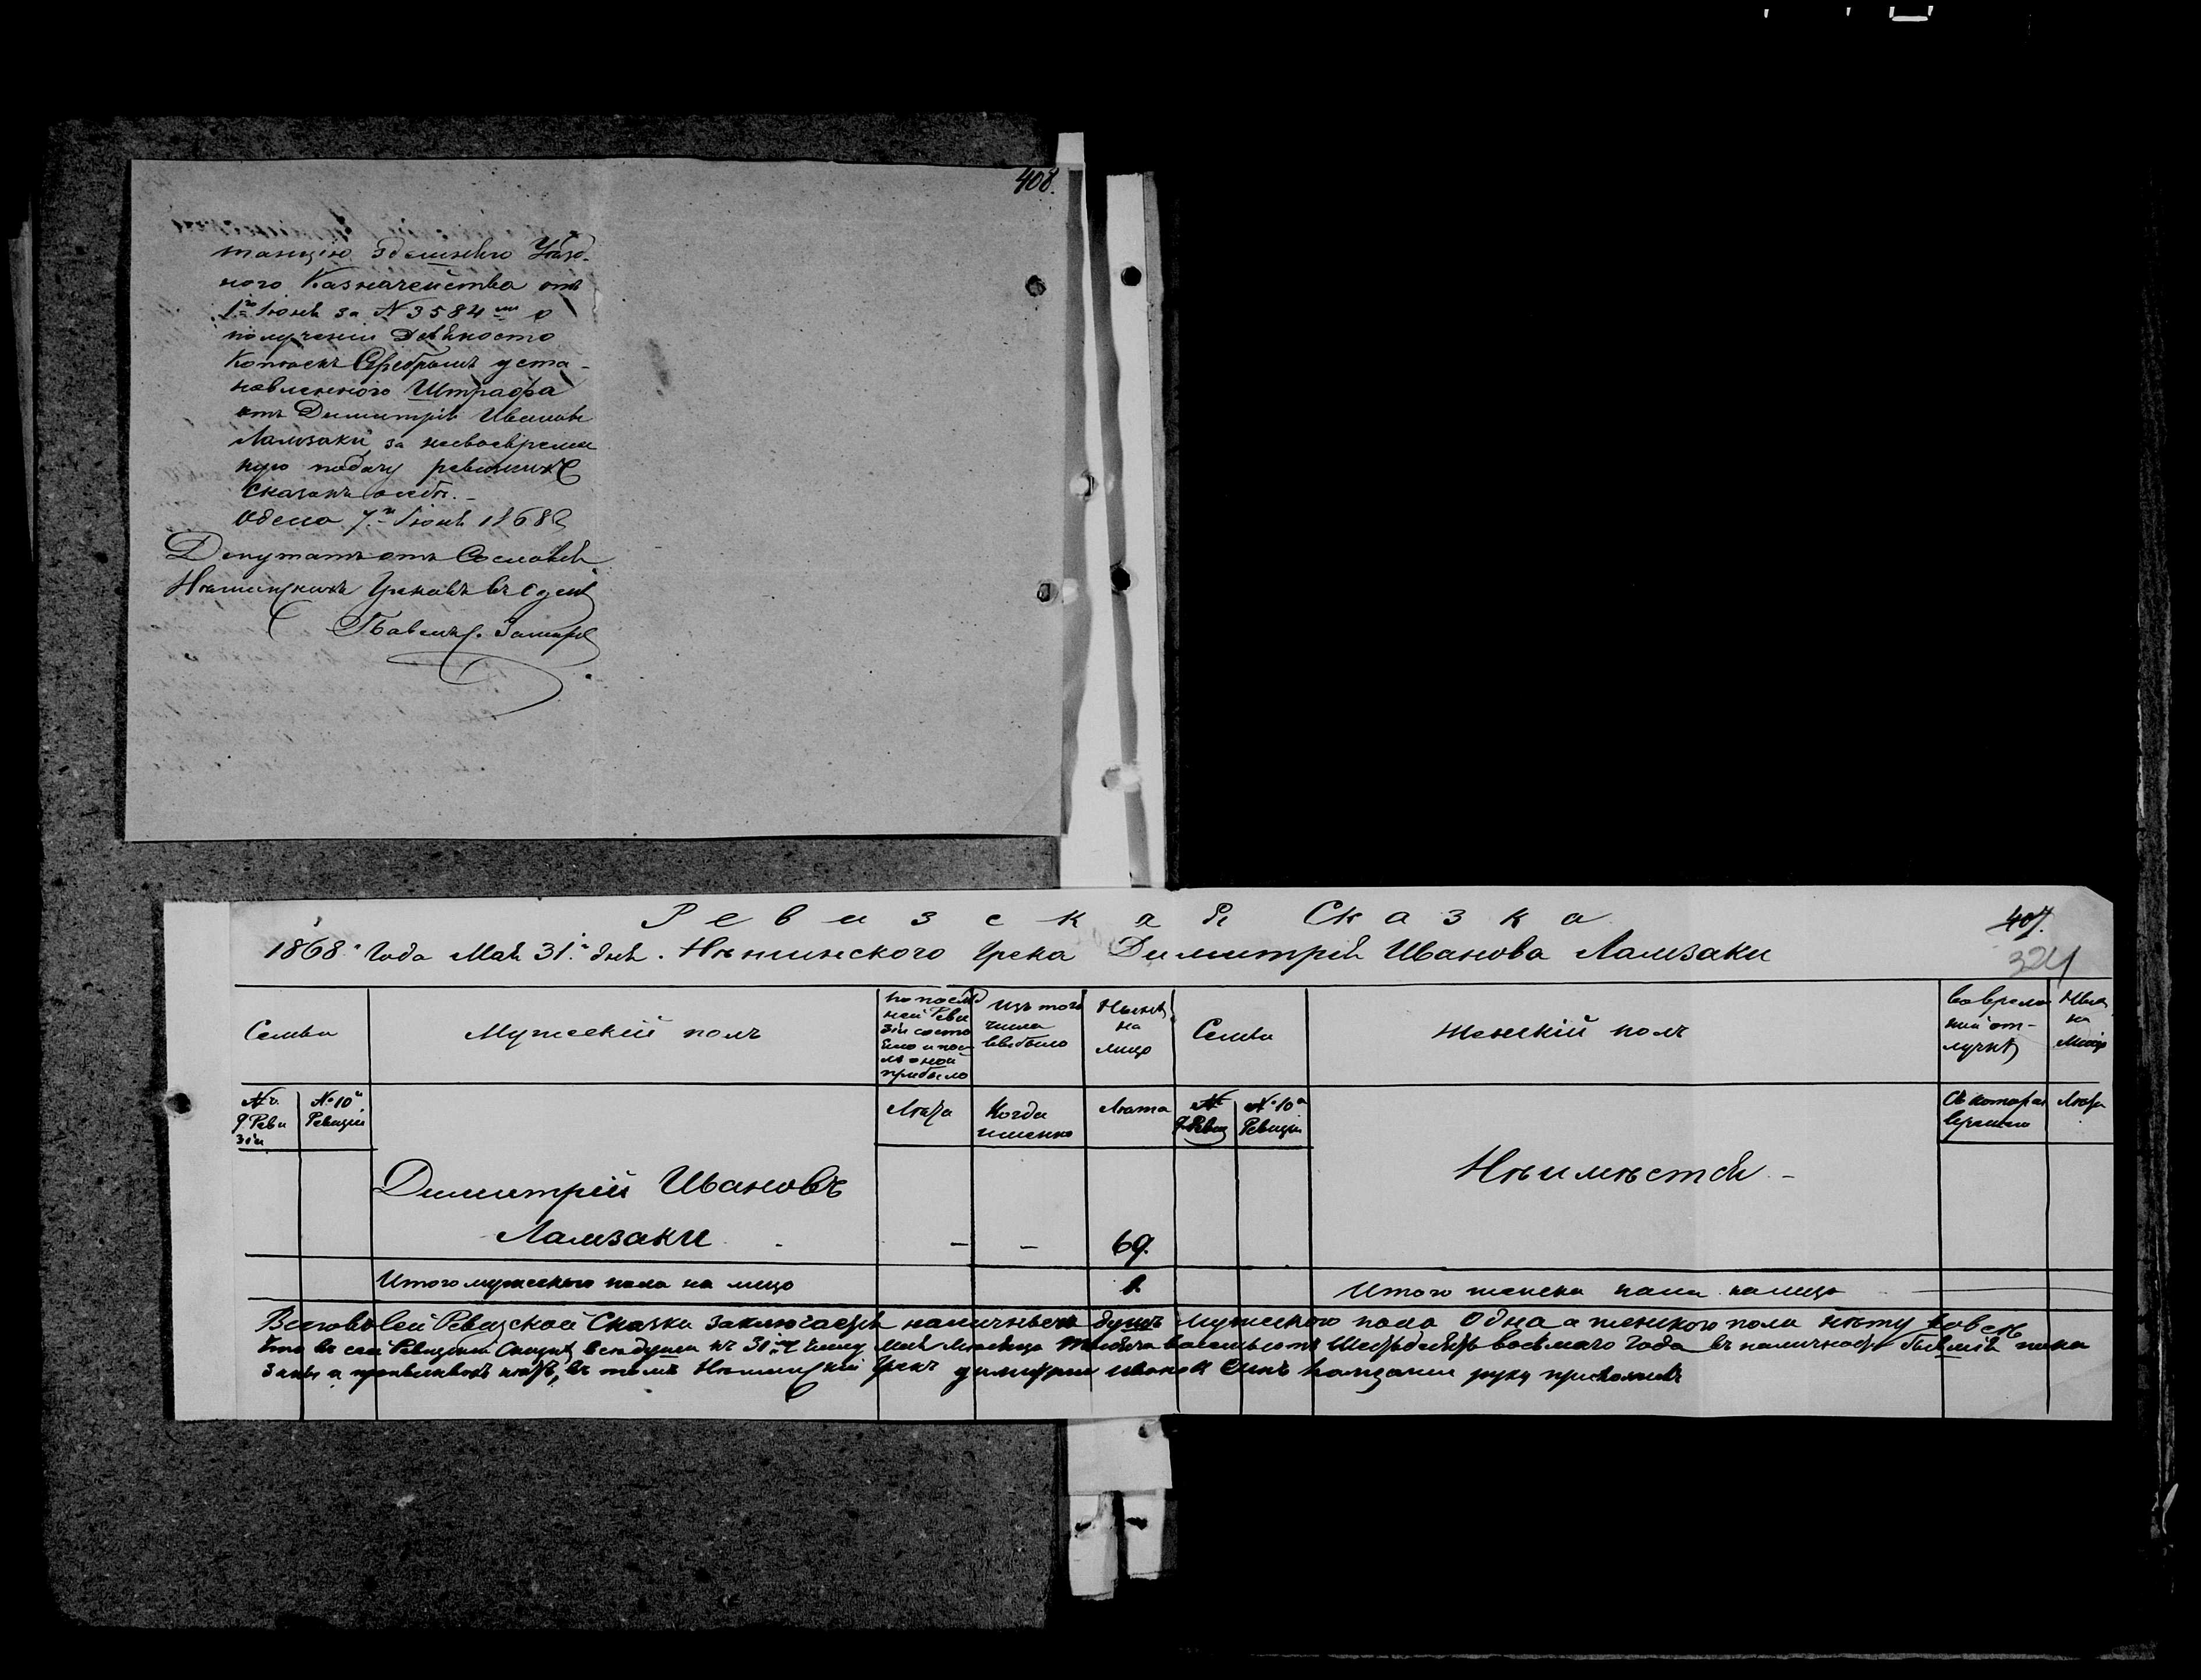 408.
танцію здешнего Уѣзд-
ного Казначейства отъ
1го Іюня за № 3584мъ о
полученіи Девяносто
копѣекъ Серебромъ уста-
новленного Штрафа
отъ Димитрія Иванова
Ламзаки, за несвоеврем
ную подачу ревизкихъ
Сказокъ о себѣ.-
Одесса 7го Іюня 1868
Депутатъ отъ Сословія
Нѣжинскихъ Грековъ въ Одессѣ
Павелъ
Ревизская Сказка
407.
324
1868 года Мая 31 дня. Нѣжинского Грека Димитрія Иванова Ламзаки
Семьи
Мужескій полъ
по послѣд
ней Реви
зіи состо
яло и пос
лѣ оной
прибыло
Изъ того
числа
выбыло
Нынѣ
на
лицо
Семьи
Женскій полъ
во време
ной от-
лучкѣ
Нынѣ
на
лицо
№
9 Реви
зіи
№ 10й
Ревизіи
Лѣта
Когда
именно
Лѣта
№
9 Ревиз
№ 10й
Ревизіи
Съ которого
времени
Лѣта
Димитрій Ивановъ
Ламзаки - - 69.
Неимѣется -
Итого мужеского пола на лицо 1.
Итого женска пола на лицо
Всего в сей Ревизской Сказки заключается наличныхъ душъ мужеского пола одна а женского пола нѣту вовсе
Что въ сей Ревизкой Сказкѣ всѣ души къ 31му числу Мая Мѣсяца Тысяча восемьсотъ Шестьдесятъ восьмого года въ наличности бывшія пока
заны а прописныхъ нѣтъ, въ томъ Нѣжинскій Грекъ димитрий иванов сынъ ламзаки руку приложилъ